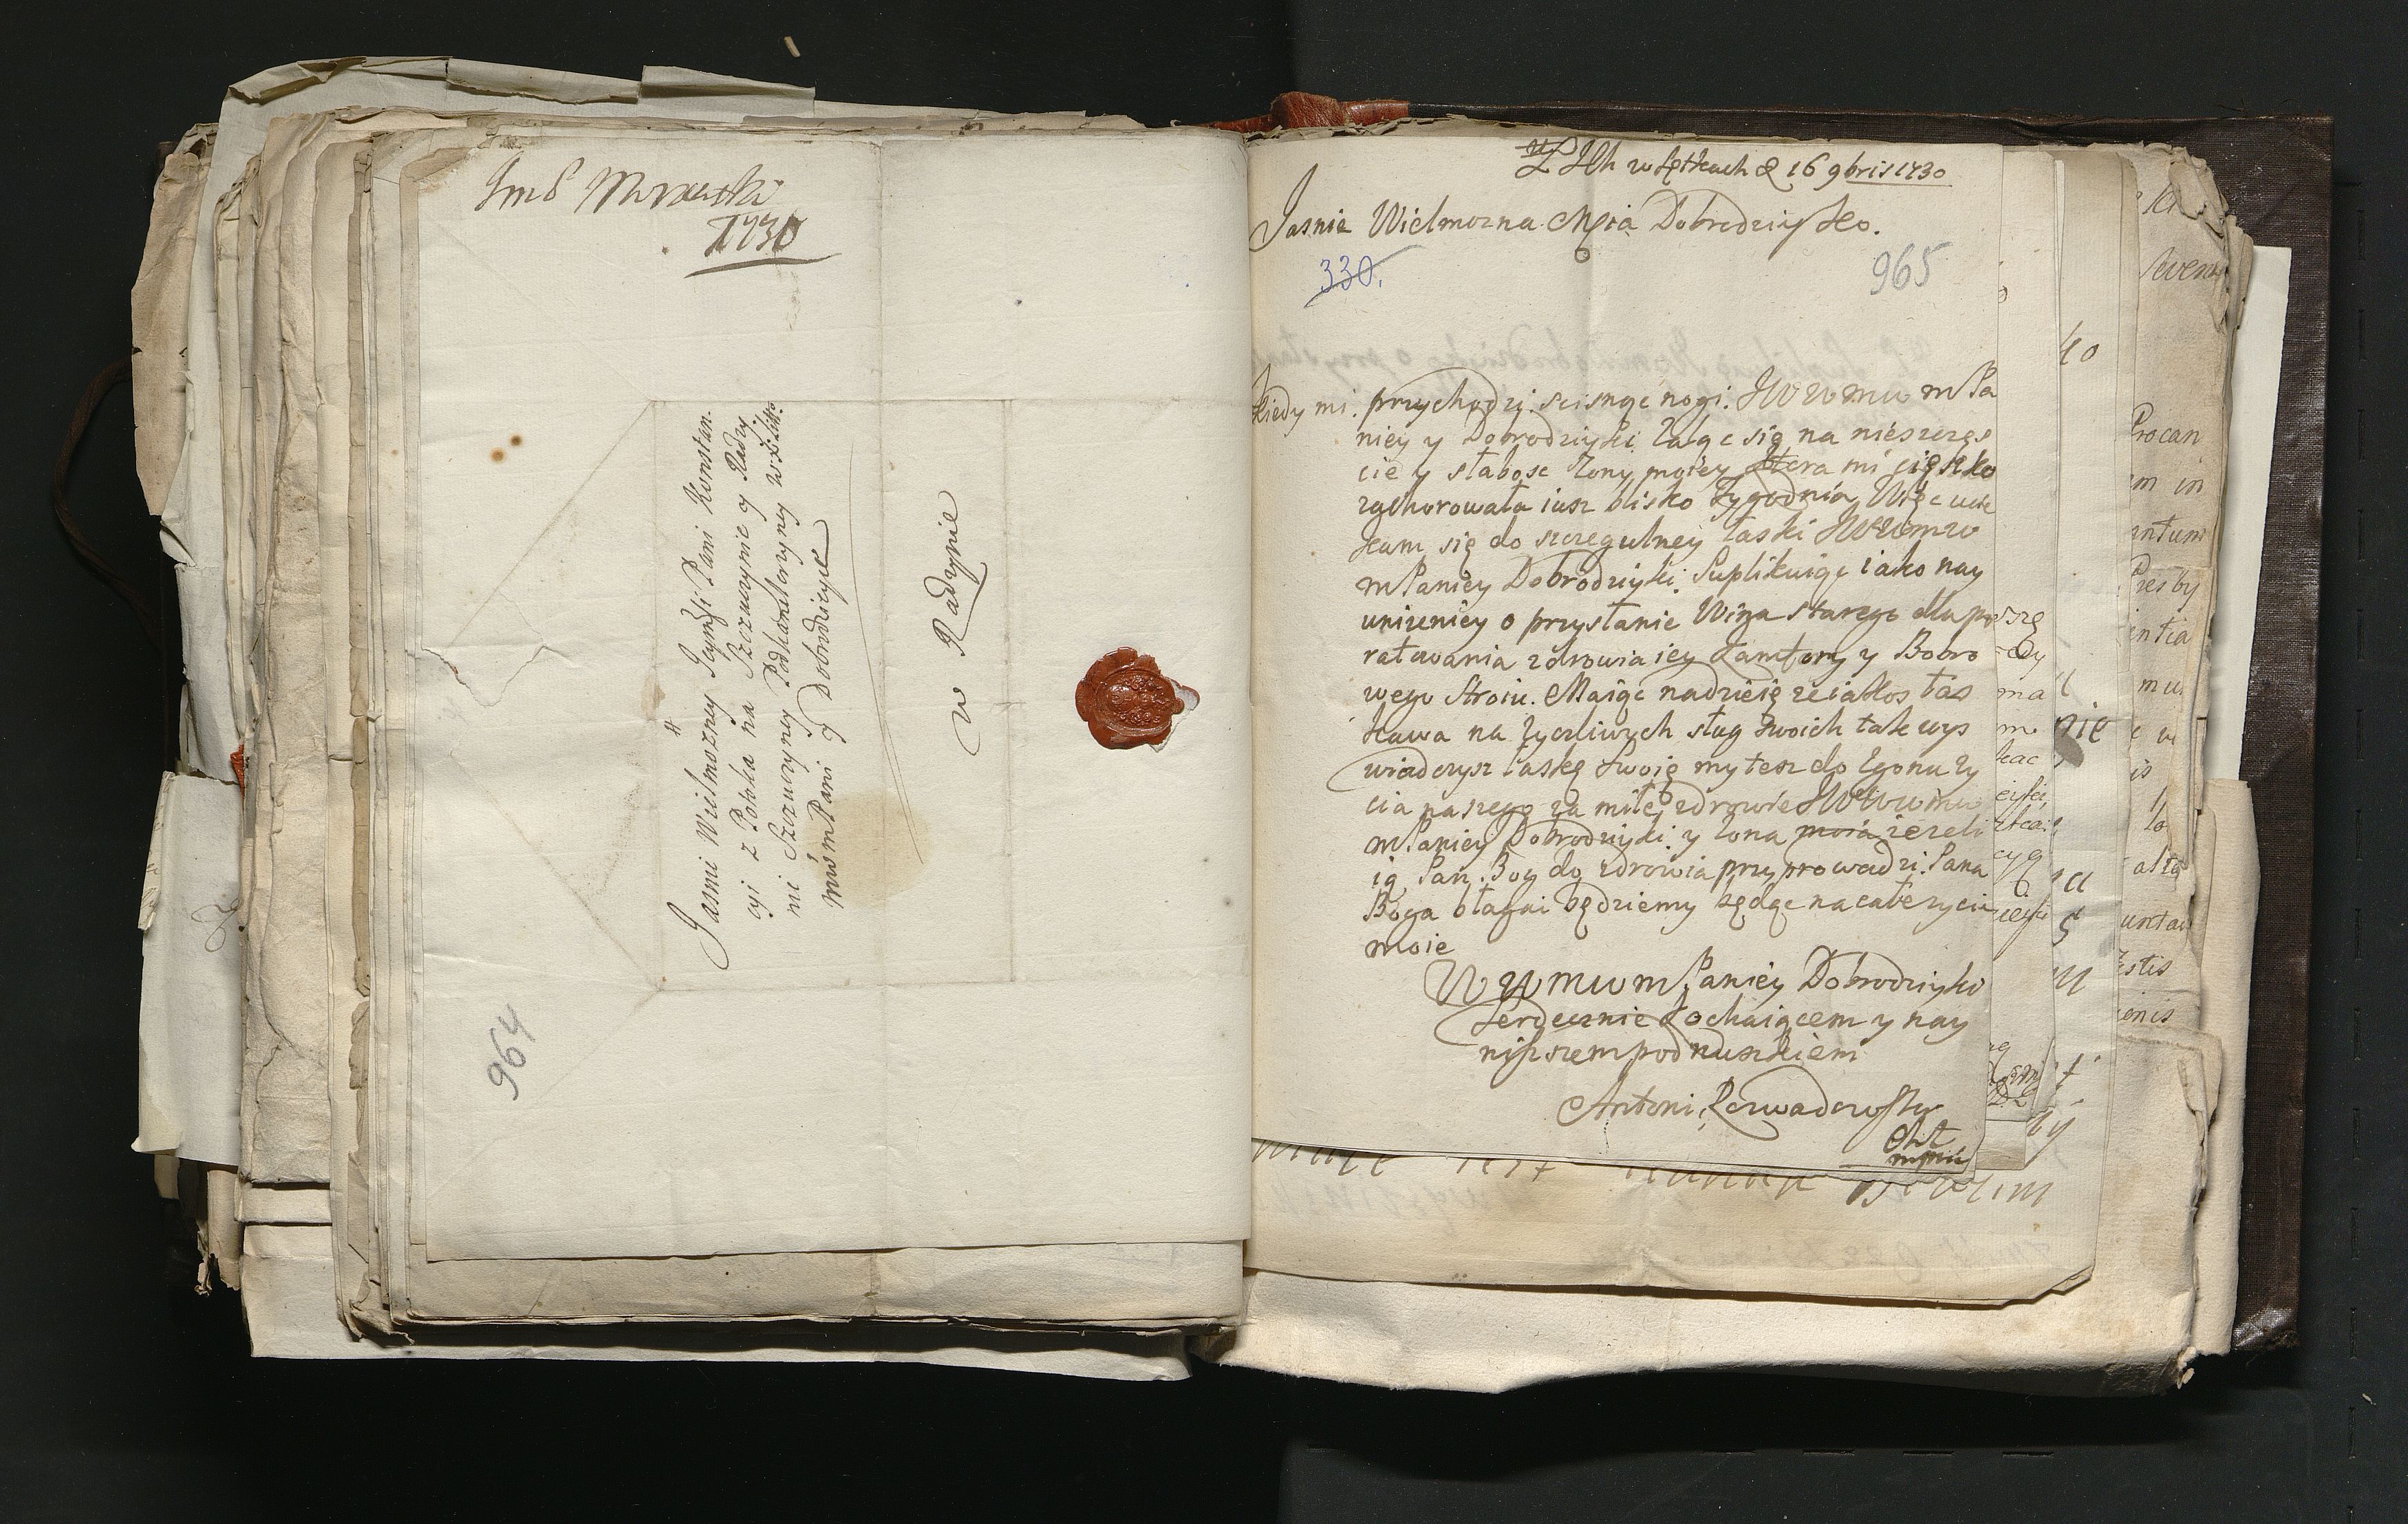 1730
Jasnie Wielmozney Jeymsci Pani Konstan.
cyi z Potoka na Szczuczynie y Radzy
ni Szczuczyney Podkanclerzyney W: X: Litt:
mw mPani y Dobrodziyce
w Radzynie
964
16 9bris 1730
Jasnie Wielmozna Mcia Dobrodziyko.
330.
965
Kiedy mi przychodzi scisnąc nogi JWWmw mPa
niey y Dobrodziyki żaląc się na nieszczęs
cie y słabosc żony moiey ktora mi cięszko
zachorowała iusz blisko tygodnia Więc ucie
kam się do szczegulney łaski JWWmw
mPaniey Dobrodziyki. Suplikuiąc iako nay
unizeniey o przysłanie Wina starego dla po
ratowania zdrowia iey kamfory y Bobro
wego Stroiu. Maiąc nadzieię ze iakos łas
kawa na życzliwych sług swoich tak wys
wiadczysz łaskę swoię my tesz do zgonu ży
cia naszego za miłe zdrowie JWWmw
mPaniey Dobrodziyki y żona moia iezeli
ią Pan Bog do zdrowia przyprowadzi. Pana
Boga błagai będziemy będąc na całe zycie
moie
WWmw mPaniey Dobrodziyki
Serdecznie kochaiącem y nay
niszszem podnuszkiem
Antoni
mpria